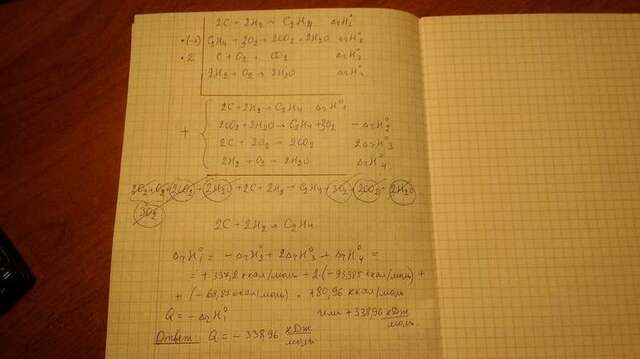 2C + 2H₂ → C₂H₄ ΔrH°₁
·(-1) C₂H₄ + 3O₂ → 2CO₂ + 2H₂O ΔrH°₂
·2 C + O₂ → CO₂ ΔrH°₃
2H₂ + O₂ → 2H₂O ΔrH°₄
2C + 2H₂ → C₂H₄ ΔrH°₁
+ 2CO₂ + 2H₂O → C₂H₄ + 3O₂ -ΔrH°₂
2C + 2O₂ → 2CO₂ 2ΔrH°₃
2H₂ + O₂ → 2H₂O ΔrH°₄
2O₂ + O₂ + 2CO₂ + 2H₂O + 2C + 2H₂ → C₂H₄ + 3O₂ + 2CO₂ + 2H₂O
3O₂
2C + 2H₂ → C₂H₄
ΔrH°₁ = -ΔrH°₂ + 2ΔrH°₃ + ΔrH°₄ =
= + 337,2 ккал/моль + 2·(-93,985 ккал/моль) +
+ (ккал/моль) = +80,96 ккал/моль
Q = -ΔrH°₁ или +338,96 кДж/моль
Ответ: Q = -338,96 кДж/моль